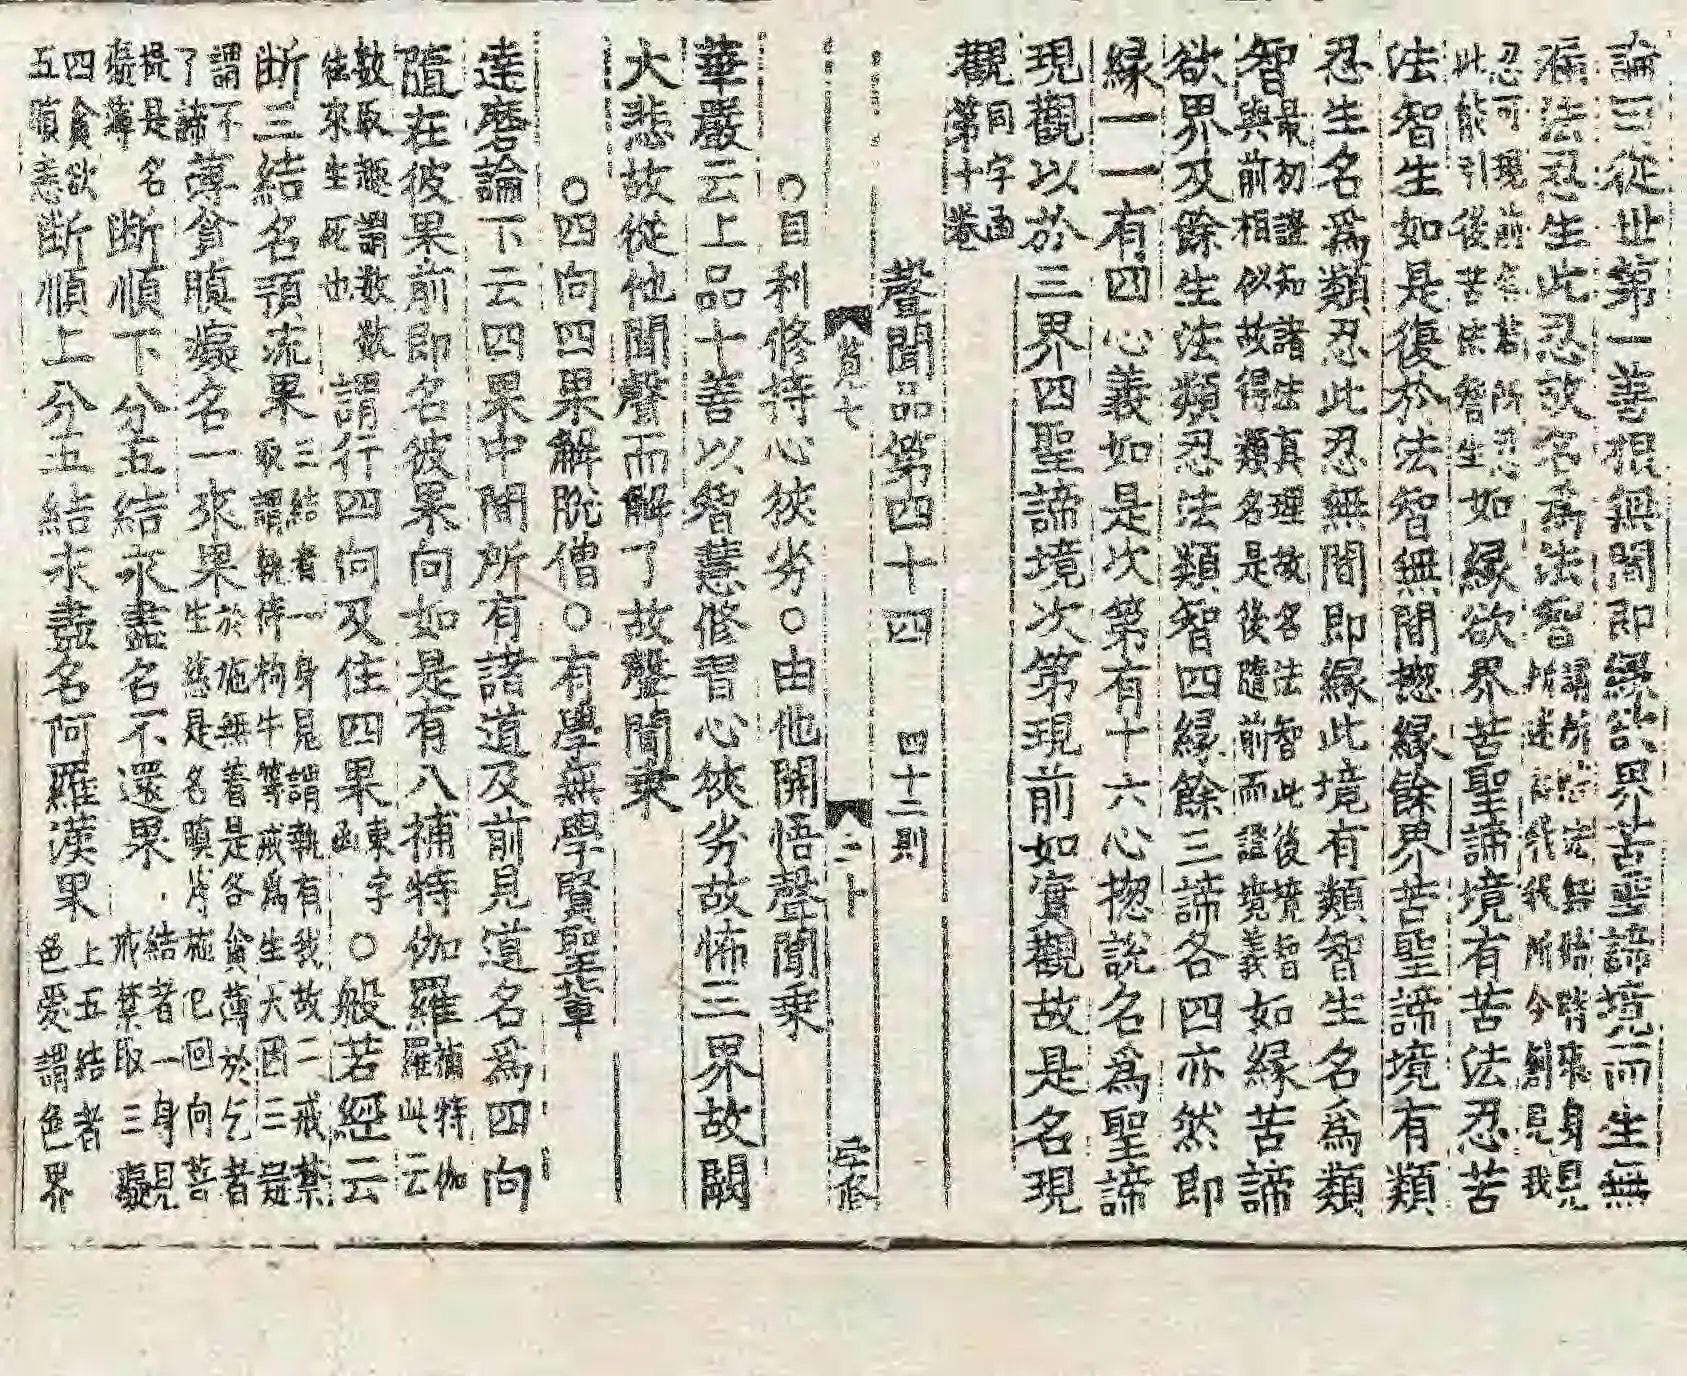 論三從世第一善根無間即緣欲界苦聖諦境而生無
漏法忍生此忍故名爲法智
忍可現前
此能引後苦法智生如緣欲界苦聖諦境有苦法忍苦
法智生如是復於法智無間揔緣餘界苦聖諦境有類
忍生名爲類忍此忍無間即緣此境有類智生名爲類
智最初證知諸法真理故名法智此後境智
與前相似故得類名是後隨前而證境義如緣苦諦
欲界及餘生法類忍法類智四緣餘三諦各四亦然即
緣一一有四心義如是次第有十六心揔說名爲聖諦
現觀以於三界四聖諦境次第現前如實觀故是名現
觀同字函
第十卷
聲聞品第四十四 四十二則
筧七 二十
○目利修持心狹劣○由他開悟聲聞乘
華嚴云上品十善以智慧修習心狹劣故怖三界故闕
大悲故從他聞聲而解了故聲聞乘
○四向四果解脫僧○有學無學賢聖章
達磨論下云四果中間所有諸道及前見道名爲四向
隨在彼果前即名彼果向如是有八補特伽羅補特伽
羅此云
數取趣謂數數
往來生死也謂行四向及住四果東字
函○般若經云
斷三結名預流果三結者一身見謂執有我故二戒禁
取謂執持狗牛等戒爲生天因三疑
謂不
了諦薄貪瞋癡名一來果於施無著是名貪薄於乞者
生慈是名瞋薄施已回向菩
提是名
癡薄斷順下分五結永盡名不還果結者一身見
戒禁取三癡
四貪欲
五瞋恚斷順上分五結永盡名阿羅漢果上五結者
色愛謂色界